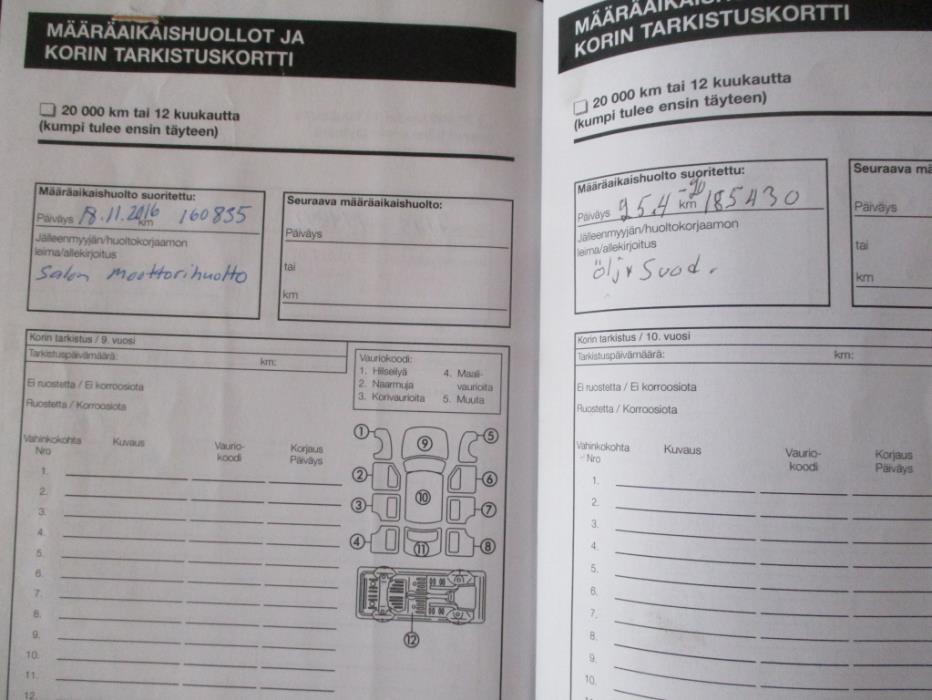 MÄÄRÄAIKAISHUOLLOT JA
KORIN TARKISTUSKORTTI
20 000 km tai 12 kuukautta
(kumpi tulee ensin täyteen)
Määräaikaishuolto suoritettu:
Päiväys 18.11.2016 km 160835
Jälleenmyyjän/huoltokorjaamon
leima/allekirjoitus
Salon Moottorihuolto
Seuraava määräaikaishuolto:
Päiväys
tai
km
Korin tarkistus / 9. vuosi
Tarkistuspäivämäärä: km:
Ei ruostetta / Ei korroosiota
Ruostetta / Korroosiota
Vauriokoodi:
1. Hilseilyä
2. Naarmuja
3. Korivaurioita
4. Maali-
vaurioita
5. Muuta
Vahinkokohta Nro
Kuvaus
Vaurio-
koodi
Korjaus
Päiväys
1.
2.
3.
4.
5.
6.
7.
8.
9.
10.
11.
12.
1 2 3 4 5 6 7 8 9 10 11 12
MÄÄRÄAIKAISHU
KORIN TARKISTUSKORTTI
20 000 km tai 12 kuukautta
(kumpi tulee ensin täyteen)
Määräaikaishuolto suoritettu:
Päiväys 25.4 -20 km 185430
Jälleenmyyjän/huoltokorjaamon
leima/allekirjoitus
öljy Suod.
Seuraava mä
Päiväys
tai
km
Korin tarkistus / 10. vuosi
Tarkistuspäivämäärä: km:
Ei ruostetta / Ei korroosiota
Ruostetta / Korroosiota
Vahinkokohta
Nro
Kuvaus
Vaurio-
koodi
Korjaus
Päiväys
1.
2.
3.
4.
5.
6.
7.
8.
9.
10.